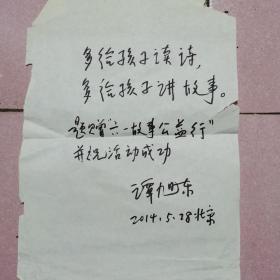 多给孩子读诗，
多给孩子讲故事。
题赠“六一故事公益行”
并祝活动成功
谭旭东
2014.5.28北京